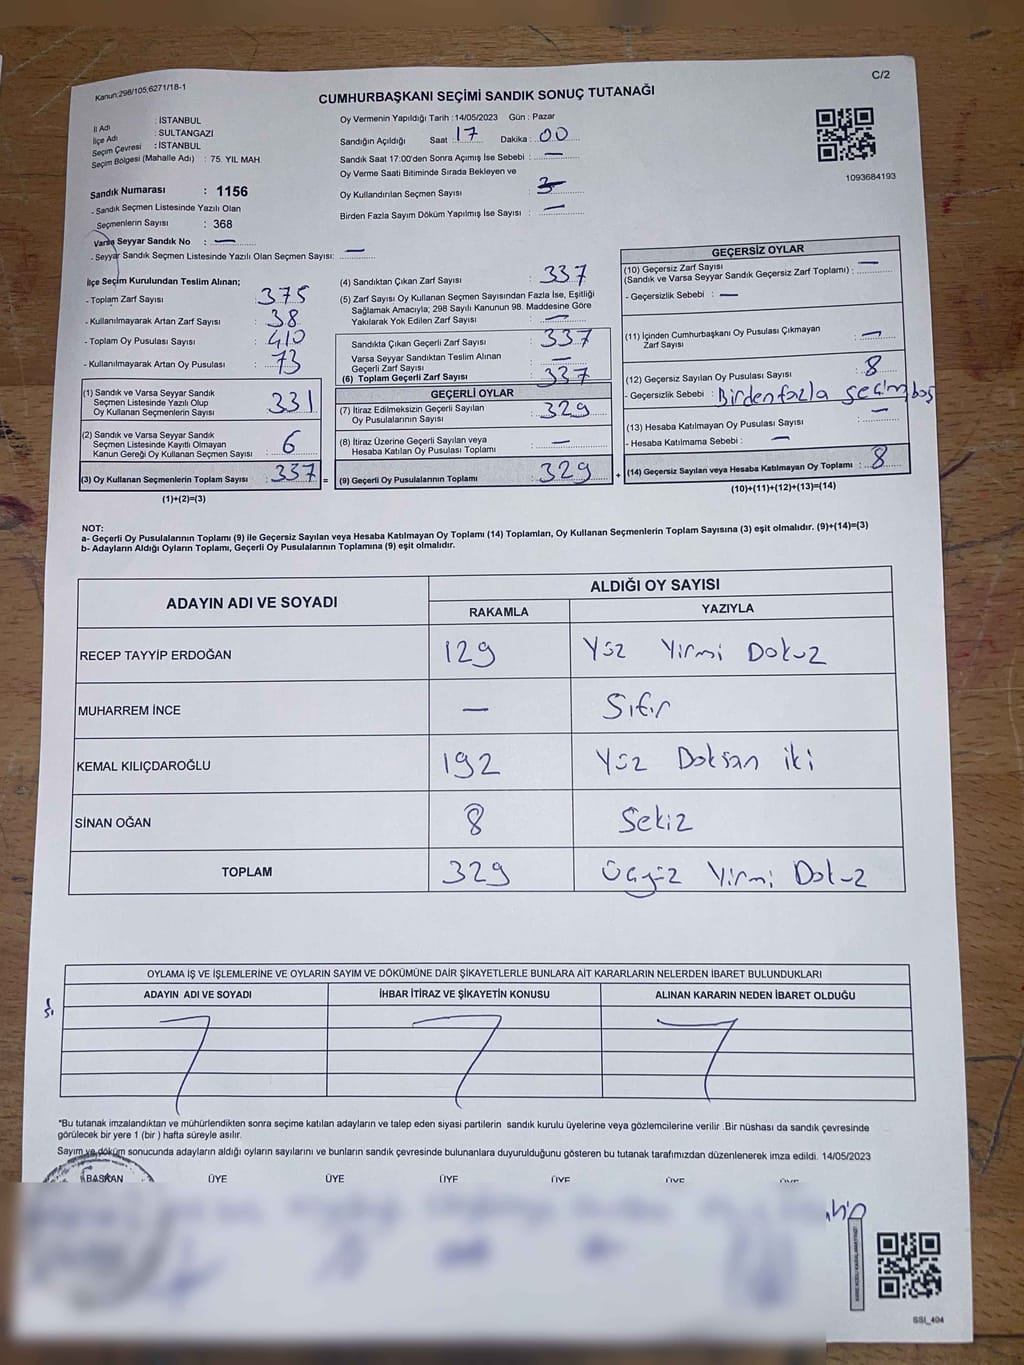 Kanun:298/105;6271/18-1
C/2
CUMHURBAŞKANI SEÇİMİ SANDIK SONUÇ TUTANAĞI
İl Adı : İSTANBUL
İlçe Adı : SULTANGAZİ
Seçim Çevresi : İSTANBUL
Seçim Bölgesi (Mahalle Adı) : 75. YIL MAH.
Sandık Numarası : 1156
- Sandık Seçmen Listesinde Yazılı Olan
Seçmenlerin Sayısı : 368
Varsa Seyyar Sandık No : —
- Seyyar Sandık Seçmen Listesinde Yazılı Olan Seçmen Sayısı: —
Oy Vermenin Yapıldığı Tarih : 14/05/2023 Gün : Pazar
Sandığın Açıldığı Saat : 17 Dakika : 00
Sandık Saat 17:00'den Sonra Açımış İse Sebebi : —
Oy Verme Saati Bitiminde Sırada Bekleyen ve
Oy Kullandırılan Seçmen Sayısı :
Birden Fazla Sayım Döküm Yapılmış İse Sayısı : —
1093684193
İlçe Seçim Kurulundan Teslim Alınan;
- Toplam Zarf Sayısı : 375
- Kullanılmayarak Artan Zarf Sayısı : 38
- Toplam Oy Pusulası Sayısı : 410
- Kullanılmayarak Artan Oy Pusulası : 73
(1) Sandık ve Varsa Seyyar Sandık
Seçmen Listesinde Yazılı Olup
Oy Kullanan Seçmenlerin Sayısı : 331
(2) Sandık ve Varsa Seyyar Sandık
Seçmen Listesinde Kayıtlı Olmayan
Kanun Gereği Oy Kullanan Seçmen Sayısı : 6
(3) Oy Kullanan Seçmenlerin Toplam Sayısı : 337 =
(1)+(2)=(3)
(4) Sandıktan Çıkan Zarf Sayısı : 337
(5) Zarf Sayısı Oy Kullanan Seçmen Sayısından Fazla İse, Eşitliği
Sağlamak Amacıyla; 298 Sayılı Kanunun 98. Maddesine Göre
Yakılarak Yok Edilen Zarf Sayısı : —
Sandıkta Çıkan Geçerli Zarf Sayısı : 337
Varsa Seyyar Sandıktan Teslim Alınan
Geçerli Zarf Sayısı : —
(6) Toplam Geçerli Zarf Sayısı : 337
GEÇERLİ OYLAR
(7) İtiraz Edilmeksizin Geçerli Sayılan
Oy Pusulalarının Sayısı : 329
(8) İtiraz Üzerine Geçerli Sayılan veya
Hesaba Katılan Oy Pusulası Toplamı : —
(9) Geçerli Oy Pusulalarının Toplamı : 329 +
GEÇERSİZ OYLAR
(10) Geçersiz Zarf Sayısı
(Sandık ve Varsa Seyyar Sandık Geçersiz Zarf Toplamı) : —
- Geçersizlik Sebebi : —
(11) İçinden Cumhurbaşkanı Oy Pusulası Çıkmayan
Zarf Sayısı : —
(12) Geçersiz Sayılan Oy Pusulası Sayısı : 8
- Geçersizlik Sebebi : Birden fazla seçim boş
(13) Hesaba Katılmayan Oy Pusulası Sayısı : —
- Hesaba Katılmama Sebebi : —
(14) Geçersiz Sayılan veya Hesaba Katılmayan Oy Toplamı : 8
(10)+(11)+(12)+(13)=(14)
NOT:
a- Geçerli Oy Pusulalarının Toplamı (9) ile Geçersiz Sayılan veya Hesaba Katılmayan Oy Toplamı (14) Toplamları, Oy Kullanan Seçmenlerin Toplam Sayısına (3) eşit olmalıdır. (9)+(14)=(3)
b- Adayların Aldığı Oyların Toplamı, Geçerli Oy Pusulalarının Toplamına (9) eşit olmalıdır.
ADAYIN ADI VE SOYADI
ALDIĞI OY SAYISI
RAKAMLA YAZIYLA
RECEP TAYYİP ERDOĞAN 129 Yüz Yirmi Dokuz
MUHARREM İNCE — Sıfır
KEMAL KILIÇDAROĞLU 192 Yüz Doksan iki
SİNAN OĞAN 8 Sekiz
TOPLAM 329 Üçyüz Yirmi Dokuz
OYLAMA İŞ VE İŞLEMLERİNE VE OYLARIN SAYIM VE DÖKÜMÜNE DAİR ŞİKAYETLERLE BUNLARA AİT KARARLARIN NELERDEN İBARET BULUNDUKLARI
ADAYIN ADI VE SOYADI İHBAR İTİRAZ VE ŞİKAYETİN KONUSU ALINAN KARARIN NEDEN İBARET OLDUĞU
*Bu tutanak imzalandıktan ve mühürlendikten sonra seçime katılan adayların ve talep eden siyasi partilerin sandık kurulu üyelerine veya gözlemcilerine verilir .Bir nüshası da sandık çevresinde
görülecek bir yere 1 (bir ) hafta süreyle asılır.
Sayım ve döküm sonucunda adayların aldığı oyların sayılarını ve bunların sandık çevresinde bulunanlara duyurulduğunu gösteren bu tutanak tarafımızdan düzenlenerek imza edildi. 14/05/2023
BAŞKAN ÜYE ÜYE ÜYE ÜYE ÜYE
SSI_404